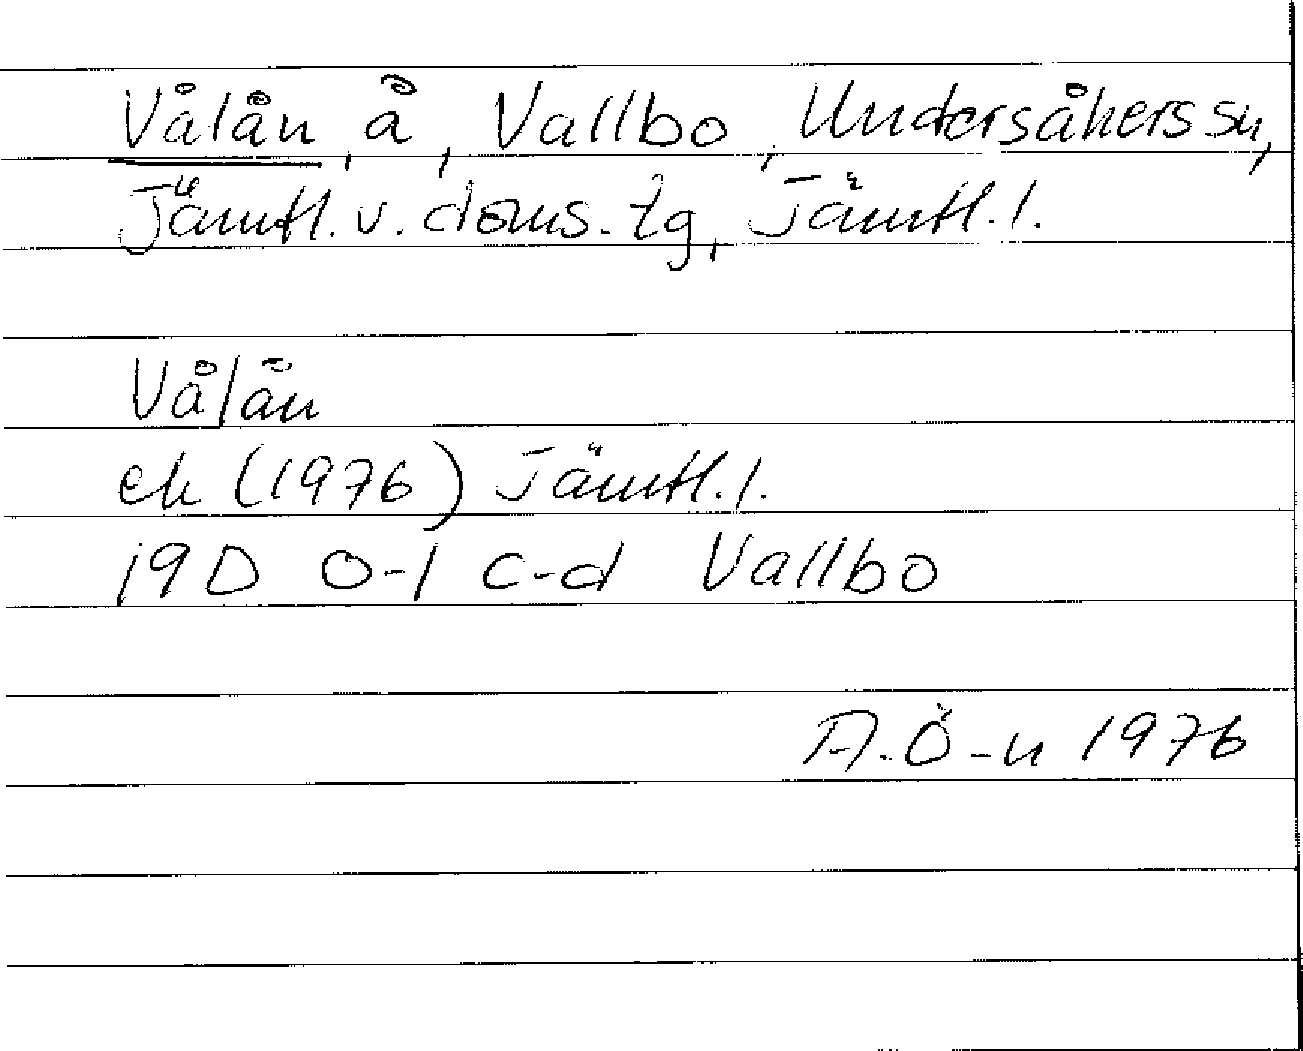 Vålån, å, Vallbo, Undersåkers sn,
Jämtl. v. doms. tg, Jämtl. l.
Vålån
ek (1976) Jämtl. l.
19D 0-1 c-d Vallbo
A. Ö-n 1976